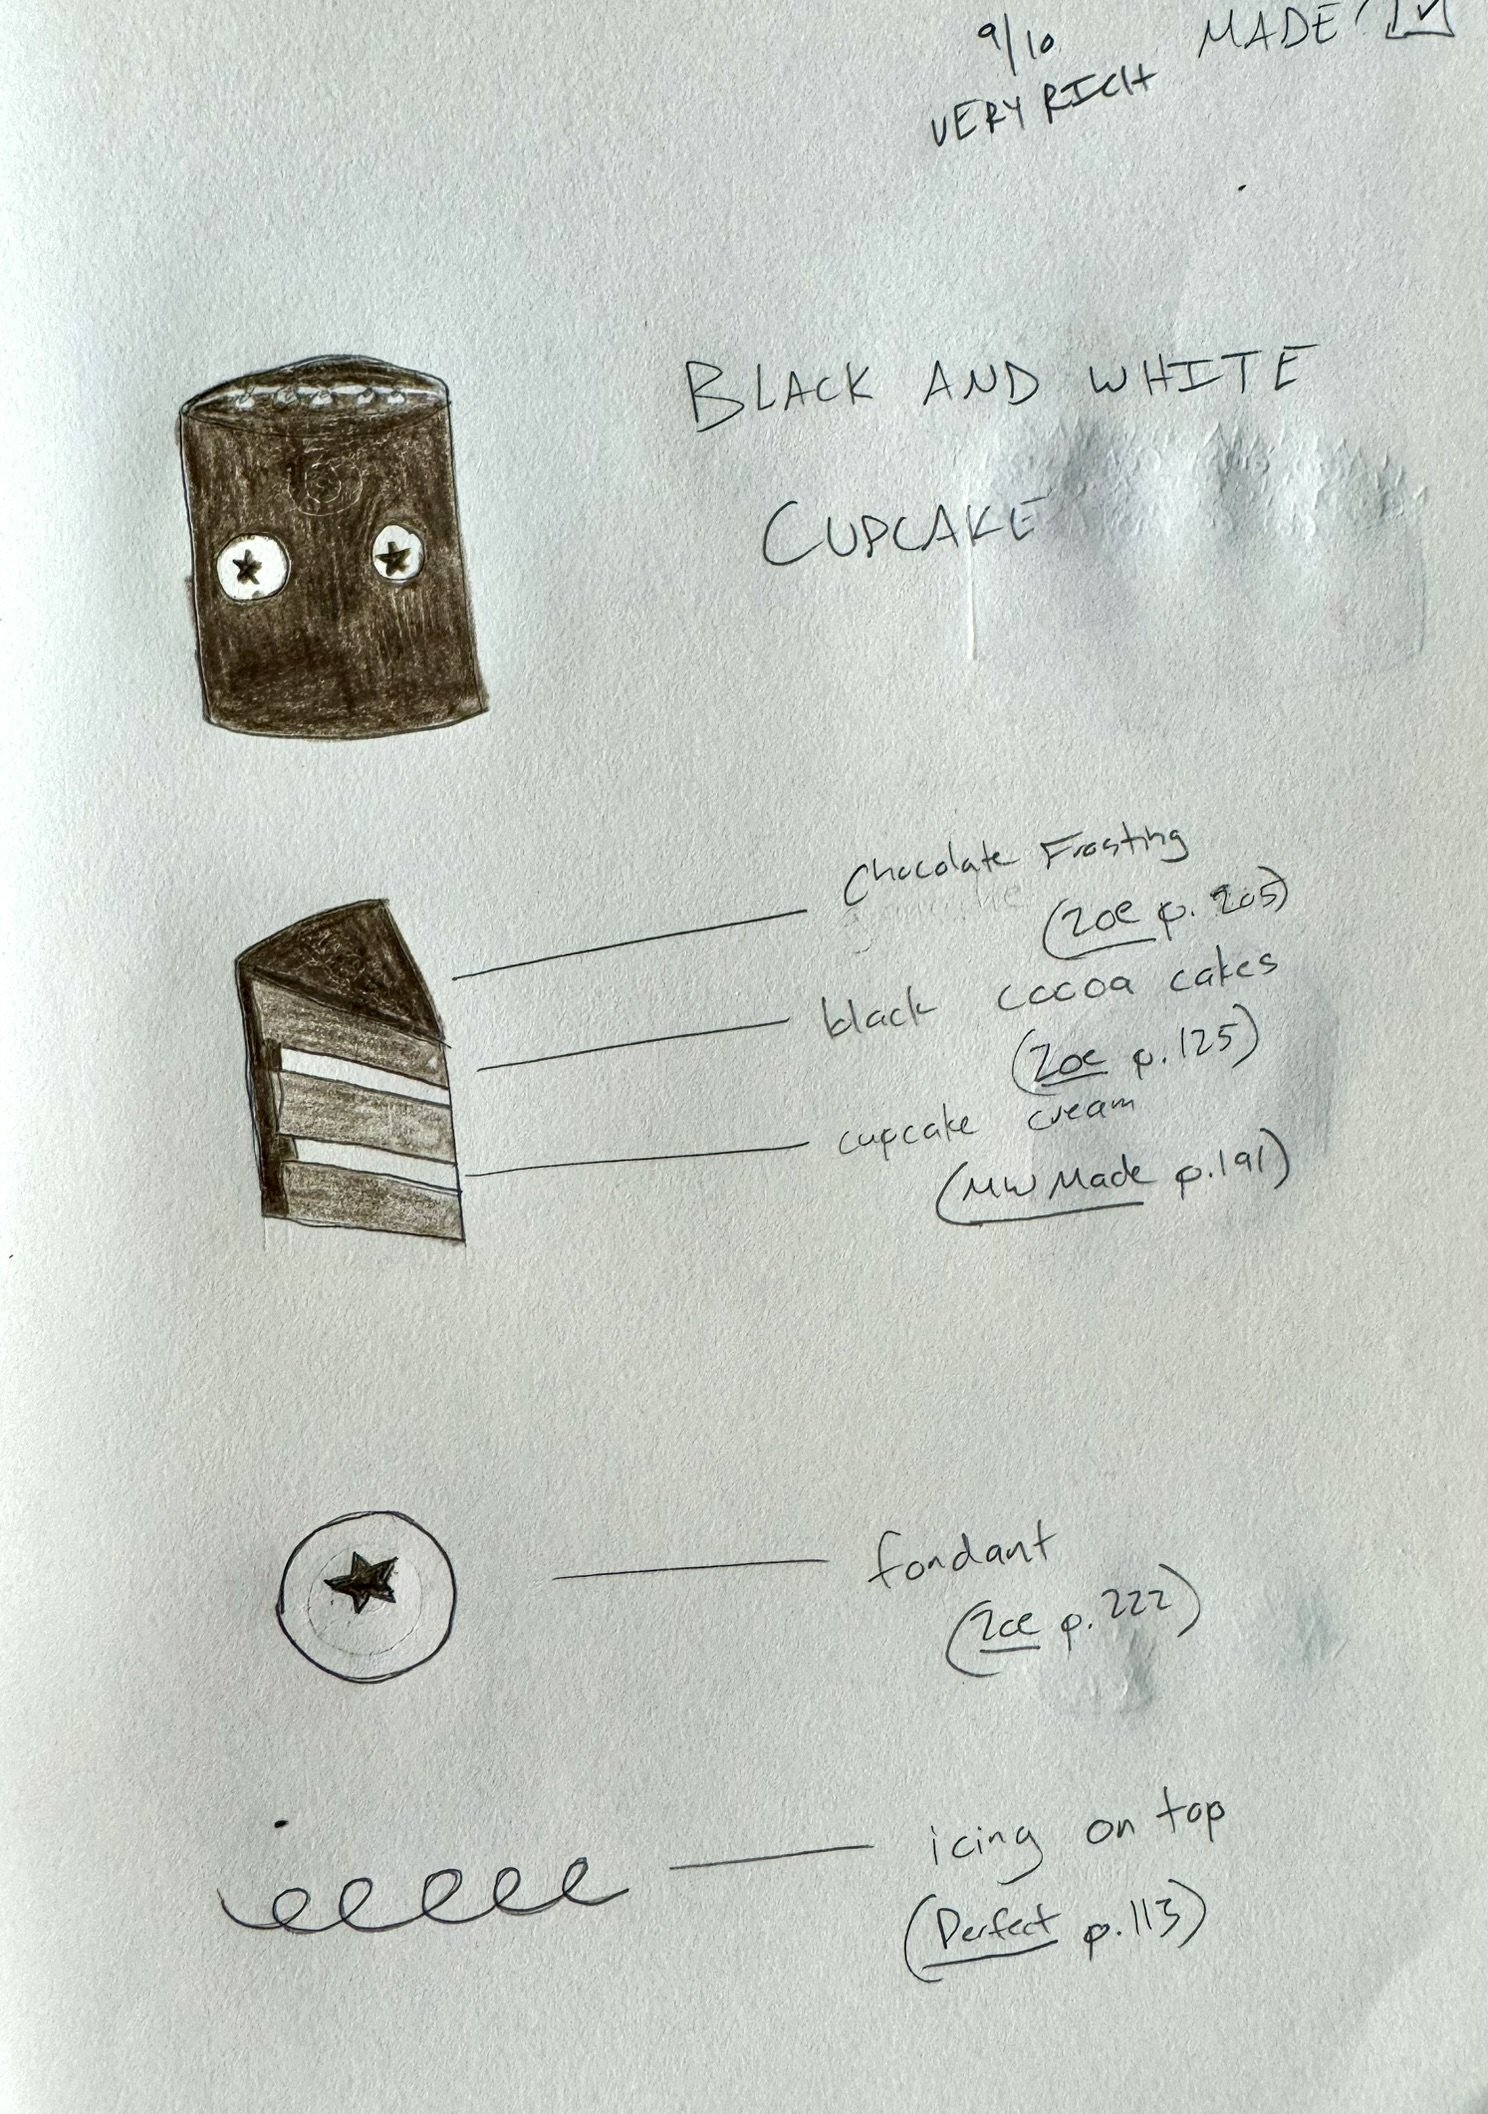 9/10
MADE?
VERY RICH
BLACK AND WHITE
CUPCAKE
Chocolate Frosting
(Zoe p. 205)
black cocoa cakes
(Zoe p.125)
cupcake cream
(MW Made p.191)
fondant
(Zoe p.222)
icing on top
(Perfect p.113)